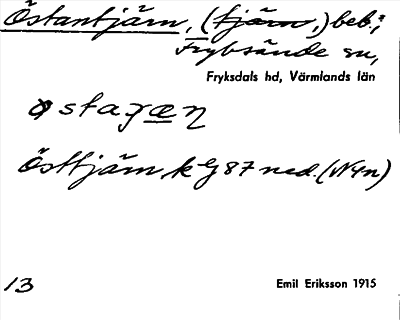 Östantjärn, (tjärn,) beb.;
Fryksände sn,
Fryksdals hd, Värmlands län
östaꞃæn
Östtjärn, k eg 87 ned. (N4n)
13
Emil Eriksson 1915